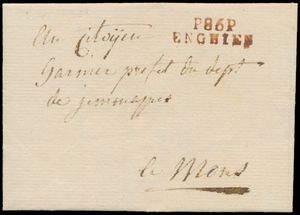 P86P
ENGHIEN
Au Citoyen
Garnier prefet du dept
de jemmappes
a Mons